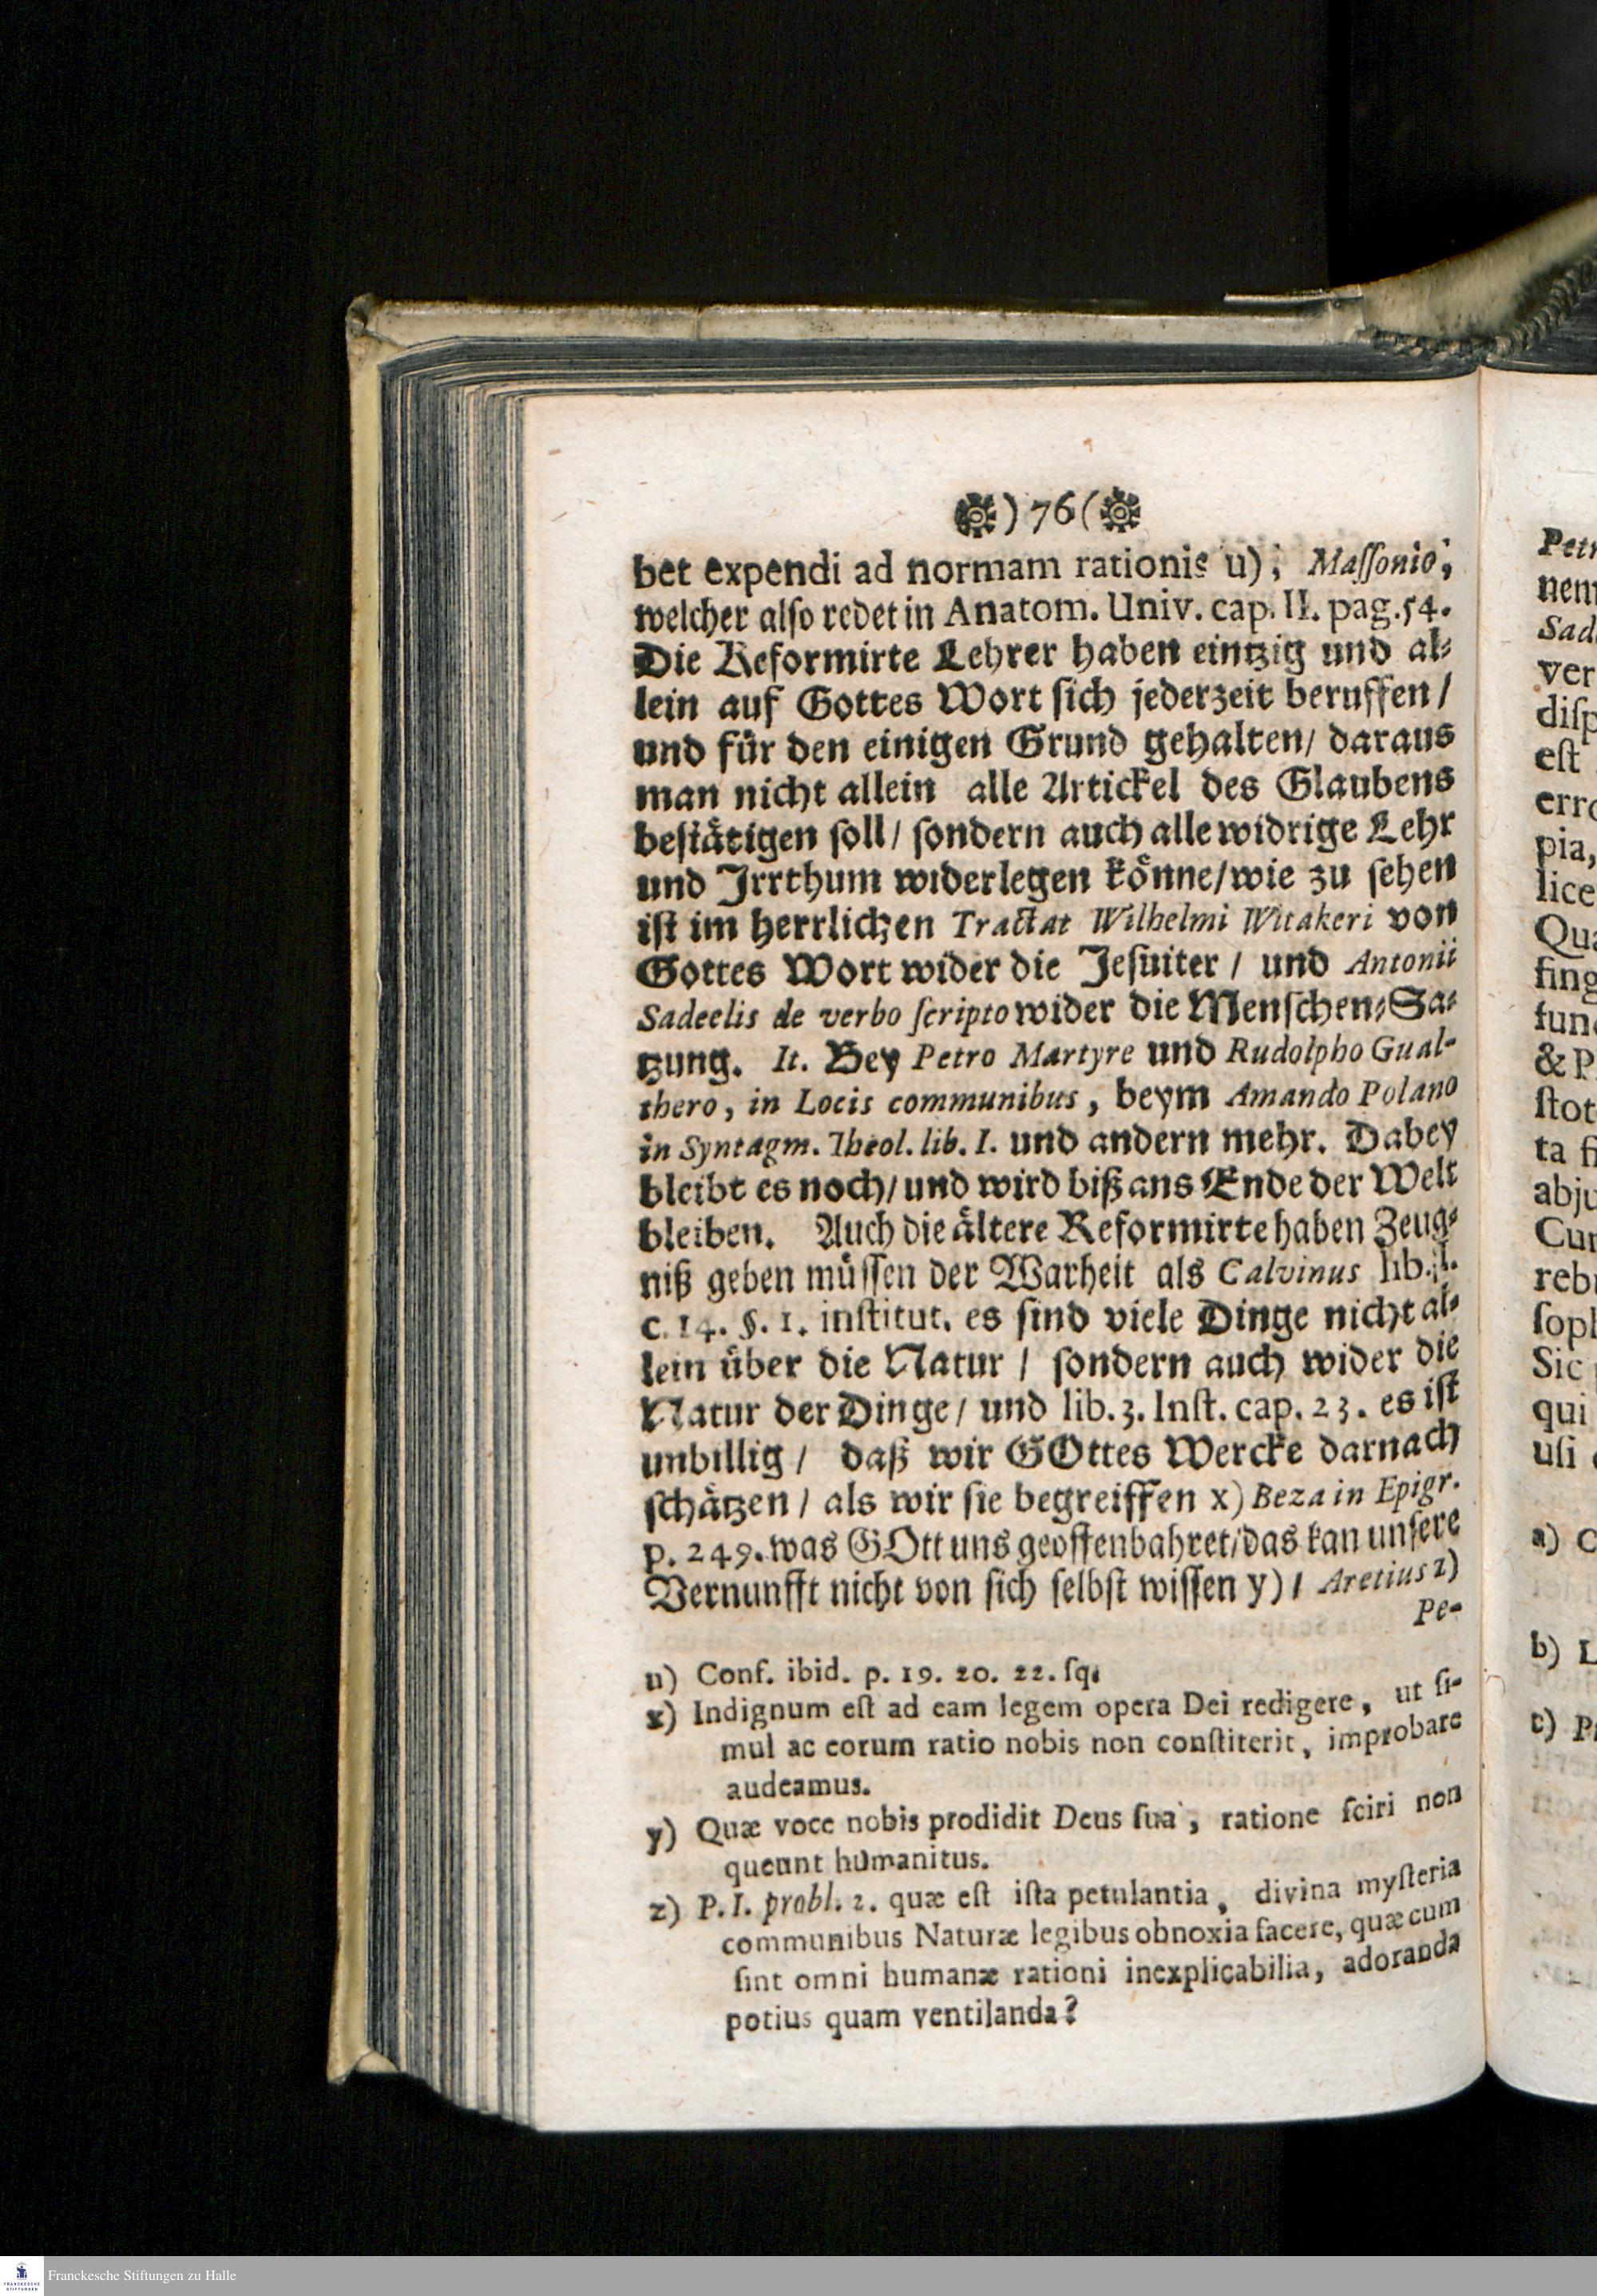 ) 76 (
bet expendi ad normam rationis u), Maſſonio,
welcher alſo redet in Anatom. Univ. cap. II. pag. 54.
Die Reformirte Lehrer haben eintzig und al⸗
lein auf Gottes Wort ſich jederzeit beruffen /
und für den einigen Grund gehalten / daraus
man nicht allein alle Artickel des Glaubens
beſtätigen ſoll / ſondern auch alle widrige Lehr
und Irrthum widerlegen könne / wie zu ſehen
iſt im herrlichen Tractat Wilhelmi Witakeri von
Gottes Wort wider die Jeſuiter / und Antonii
Sadeelis de verbo ſcripto wider die Menſchen⸗Sa⸗
tzung. It. Bey Petro Martyre und Rudolpho Gual-
thero, in Locis communibus, beym Amando Polano
in Syntagm. Theol. lib. I. und andern mehr. Dabey
bleibt es noch / und wird biß ans Ende der Welt
bleiben. Auch die ältere Reformirte haben Zeug⸗
niß geben müſſen der Warheit als Calvinus lib.
c. 14. §. 1. inſtitut. es ſind viele Dinge nicht al⸗
lein über die Natur / ſondern auch wider die
Natur der Dinge / und lib. 3. Inſt. cap. 23. es iſt
unbillig / daß wir GOttes Wercke darnach
ſchätzen / als wir ſie begreiffen x) Beza in Epigr.
p. 249. was GOtt uns geoffenbahret / das kan unſere
Vernunfft nicht von ſich ſelbſt wiſſen y) / Aretius z)
Pe-
u) Conf. ibid. p. 19. 20. 22. ſq.
x) Indignum eſt ad eam legem opera Dei redigere, ut ſi-
mul ac eorum ratio nobis non conſtiterit, improbare
audeamus.
y) Quæ voce nobis prodidit Deus ſua, ratione ſciri non
queunt humanitus.
z) P. I. probl. 2. quæ eſt iſta petulantia, divina myſteria
communibus Naturæ legibus obnoxia facere, quæ cum
ſint omni humanæ rationi inexplicabilia, adoranda
potius quam ventilanda?
Petr
nem
Sad
ver
diſp
eſt
erro
pia,
lice
Qua
fing
fund
& P
ſtot
ta fi
abju
Cur
reb
ſoph
Sic
qui
uſi
a) C
b) L
c) P
FRANCKESCHE
STIFTUNGEN
Franckesche Stiftungen zu Halle